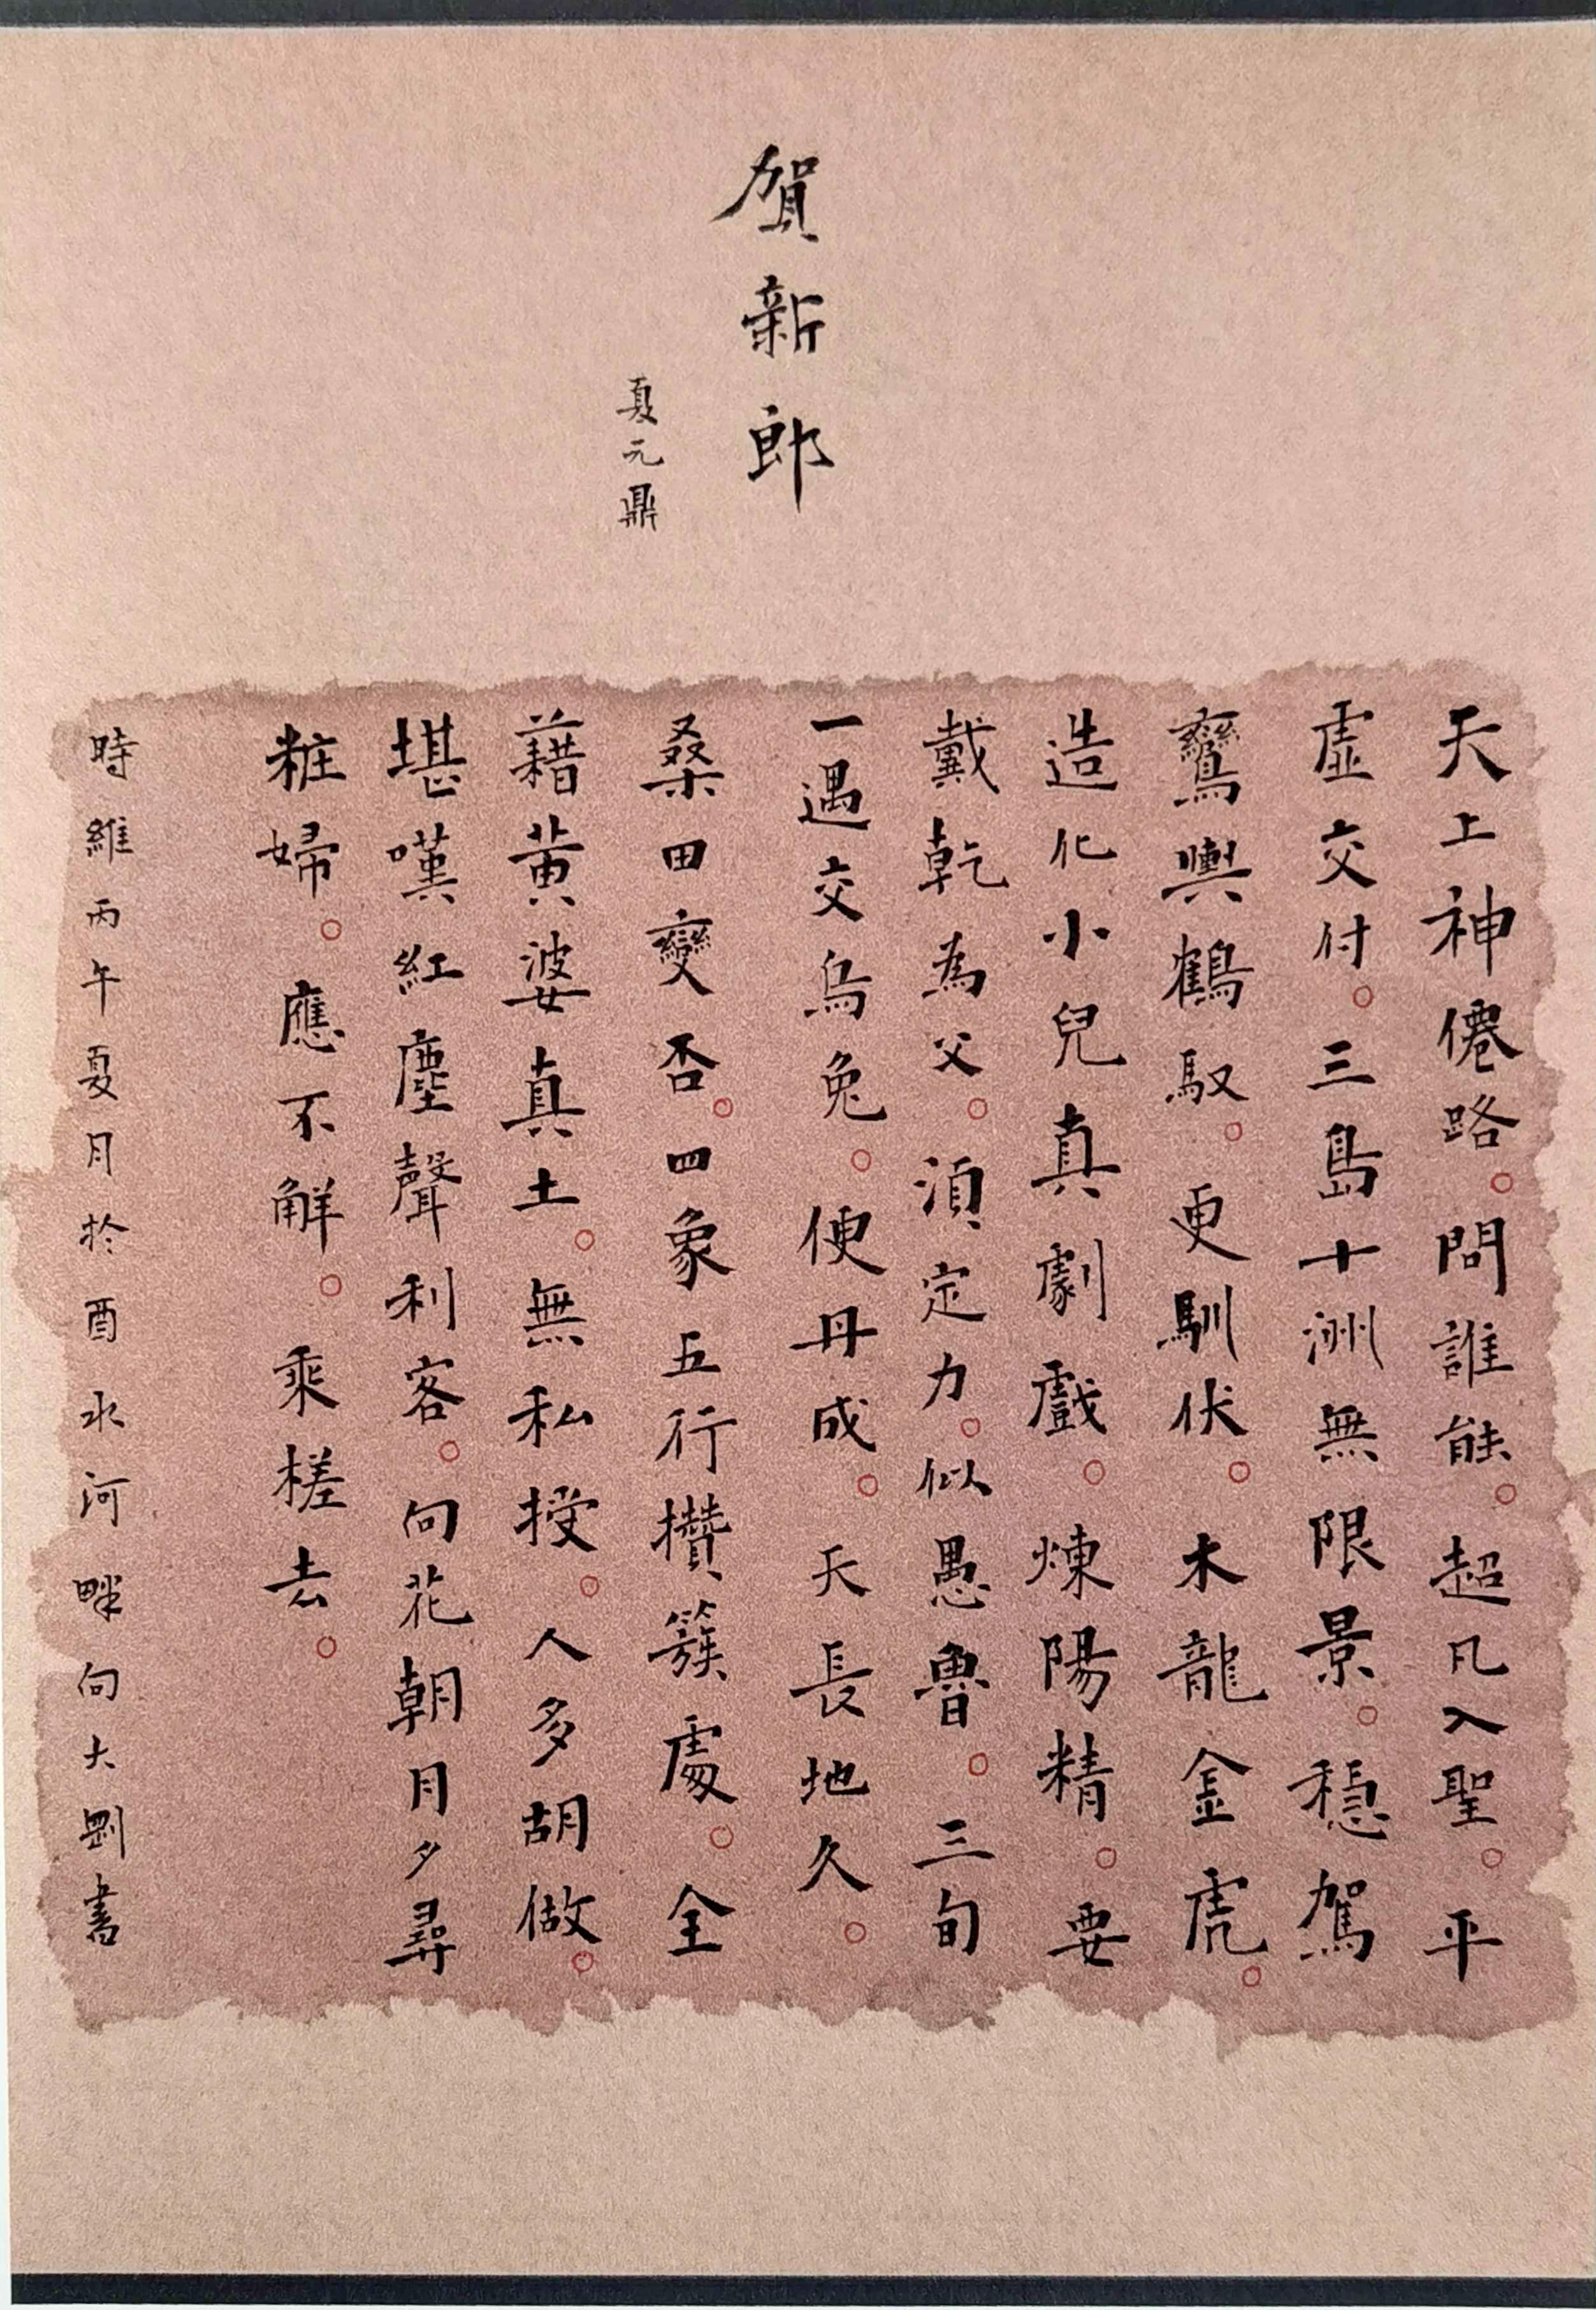 賀新郎
夏元鼎
天上神僊路。問誰能。超凡入聖。平
虛交付。三島十洲無限景。穩駕
鸞輿鶴馭。更馴伏。木龍金虎。
造化小兒真劇戲。煉陽精。要
戴乾為父。須定力。似愚魯。三旬
一遇交烏兔。便丹成。天長地久。
桑田變否。四象五行攢簇處。全
藉黃婆真土。無私授。人多胡做。
堪嘆紅塵聲利客。向花朝月夕尋
粧婦。應不解。乘槎去。
時維丙午夏月於酉水河畔向大剛書